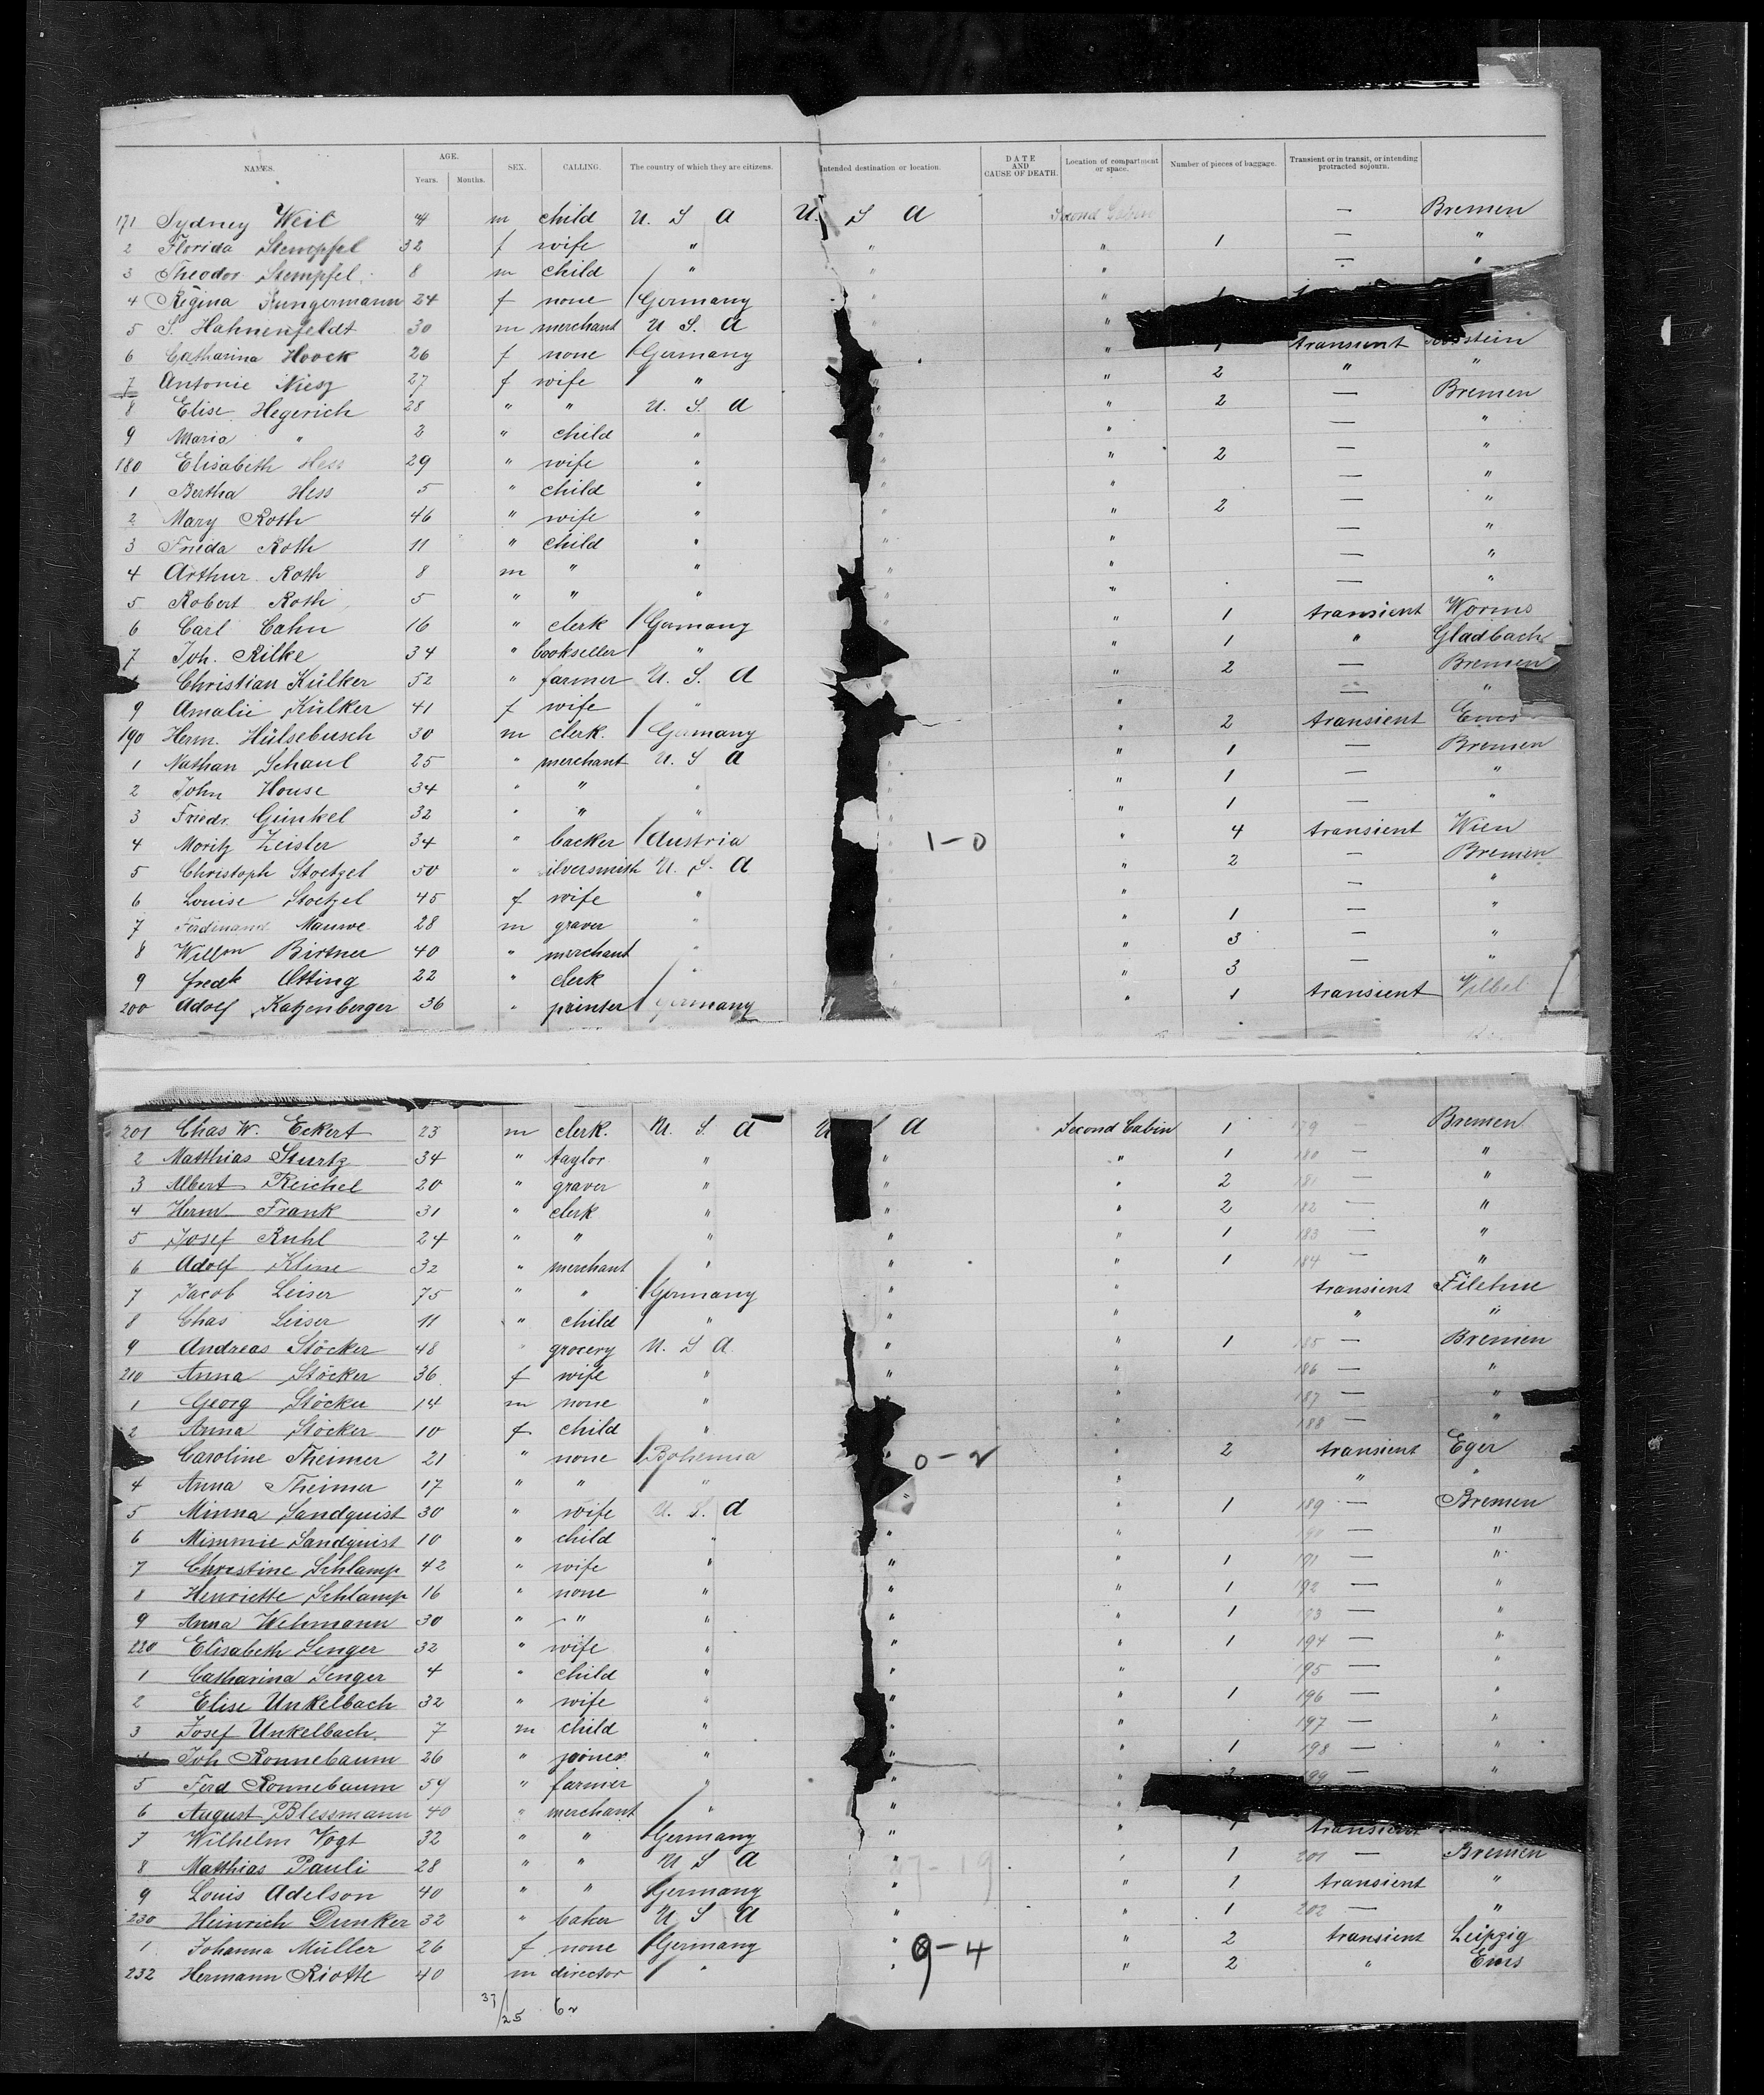 NAMES. AGE. Years. Months. SEX. CALLING. The country of which they are citizens. Intended destination or location. DATE AND CAUSE OF DEATH. Location of compartment or space. Number of pieces of baggage. Transient or in transit, or intending protracted sojourn.
171 Sydney Weil 4 m child U. S. A U. S A Second Cabin — Bremen
2 Florida Stempfel 32 f wife " " " 1 — "
3 Theodor Stempfel 8 m child " " " — "
4 Regina Jungermann 24 f none Germany " "
5 S. Hahnenfeldt 30 m merchant U. S. A " "
6 Catharina Hoock 26 f none Germany " 1 transient
7 Antonie Niesz 27 f wife " " " 2 " "
8 Elise Hegerich 28 " " U. S. A " " 2 — Bremen
9 Maria " 2 " child " " " — "
180 Elisabeth Hess 29 " wife " " " 2 — "
1 Bertha Hess 5 " child " " " — "
2 Mary Roth 46 " wife " " " 2 — "
3 Frieda Roth 11 " child " " " — "
4 Arthur Roth 8 m " " " " — "
5 Robert Roth 5 " " " " " — "
6 Carl Cahn 16 " clerk Germany " " 1 transient Worms
7 Joh. Rilke 34 " bookseller " " 1 " Gladbach
Christian Külker 52 " farmer U. S. A " 2 — Bremen
9 Amalie Külker 41 f wife " " — "
190 Herm. Hülsebusch 30 m clerk. Germany " 2 transient Ems
1 Nathan Schaul 25 " merchant U. S A " " 1 — Bremen
2 John House 34 " " " " " 1 — "
3 Friedr. Günkel 32 " " " " " 1 — "
4 Moritz Zeisler 34 " backer Austria " 1-0 " 4 transient Wien
5 Christoph Stoetzel 50 " ilversmith U. S. A " " 2 — Bremen
6 Louise Stoetzel 45 f wife " " " — "
7 Ferdinand Mauwe 28 m graver " " " 1 — "
8 Willm Birtner 40 " merchant " " " 3 — "
9 Fredk Otting 22 " clerk " " " 3 — "
200 Adolf Katzenberger 36 " painter Germany " 1 transient Vilbel
201 Chas W. Eckert 23 m clerk. U. S. A U S A Second Cabin 1 179 Bremen
2 Matthias Sturtz 34 " taylor " " " 1 180 — "
3 Albert Reichel 20 " graver " " " 2 181 — "
4 Herm. Frank 31 " clerk " " " 2 182 — "
5 Josef Ruhl 24 " " " " " 1 183 — "
6 Adolf Kline 32 " merchant " " " 1 184 — "
7 Jacob Leiser 75 " " Germany " " transient Filehne
8 Chas Leiser 11 " child " " " " "
9 Andreas Stöcker 48 " grocery U. S A " " 1 185 — Bremen
210 Anna Stöcker 36 f wife " " " 186 — "
1 Georg Stöcker 14 m none " " 187 — "
2 Anna Stöcker 10 f child " " 188 — "
Caroline Theimer 21 " none Bohemia " 0-2 " 2 transient Eger
4 Anna Theimer 17 " " " " " " "
5 Minna Sandquist 30 " wife U. S. A " " 1 189 — Bremen
6 Mimmie Sandquist 10 " child " " " 190 — "
7 Christine Schlamp 42 " wife " " " 1 191 — "
8 Henriette Schlamp 16 " none " " " 1 192 — "
9 Anna Wehmann 30 " " " " " 1 193 — "
220 Elisabeth Senger 32 " wife " " " 1 194 — "
1 Catharina Senger 4 " child " " " 195 — "
2 Elise Unkelbach 32 " wife " " " 1 196 — "
3 Josef Unkelbach. 7 m child " " " 197 — "
4 Joh Ronnebaum 26 " joiner " " " 1 198 — "
5 Ferd Ronnebaum 54 " farmer " " " 2 199 — "
6 August Blessmann 40 " merchant " " "
7 Wilhelm Vogt 32 " " Germany " " 1 transient
8 Matthias Pauli 28 " " U S A " " 1 201 — Bremen
9 Louis Adelson 40 " " Germany " " 1 transient "
230 Heinrich Dunker 32 " baker U S A " " 1 202 — "
1 Johanna Müller 26 f none Germany " 9-4 " 2 transient Leipzig
232 Hermann Riotte 40 m director " " " 2 " Ems
37/25 62